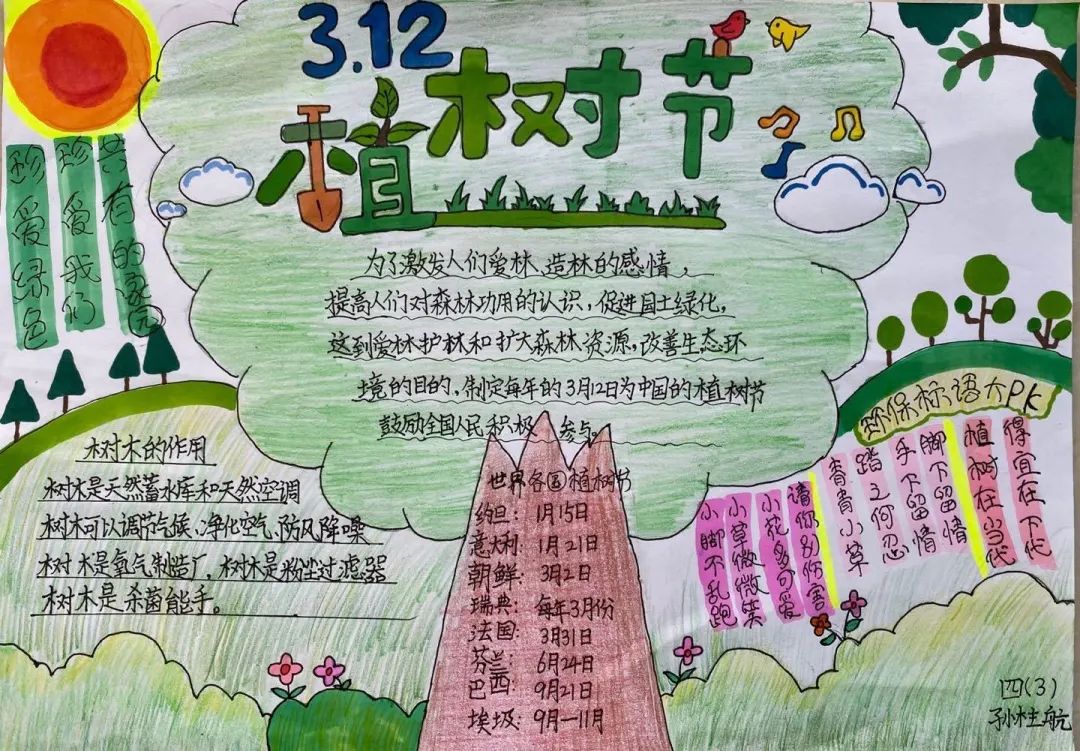 3.12
植树节
珍爱绿色
珍爱我们
共有的家园
为了激发人们爱林、造林的感情,
提高人们对森林功用的认识,促进国土绿化,
达到爱林护林和扩大森林资源,改善生态环
境的目的,制定每年的3月12日为中国的植树节
鼓励全国人民积极参与。
树木的作用
树木是天然蓄水库和天然空调
树木可以调节气候、净化空气、防风降噪
树木是氧气制造厂,树木是粉尘过滤器
树木是杀菌能手。
世界各国植树节
约旦:1月15日
意大利:1月21日
朝鲜:3月2日
瑞典:每年3月份
法国:3月31日
芬兰:6月24日
巴西:9月21日
埃圾:9月—11月
环保标语大PK
植树在当代
得宜在下代
手下留情
脚下留情
青青小草
踏之何忍
小花多可爱
请你别伤害
小草微微笑
小脚不乱跑
四(3)